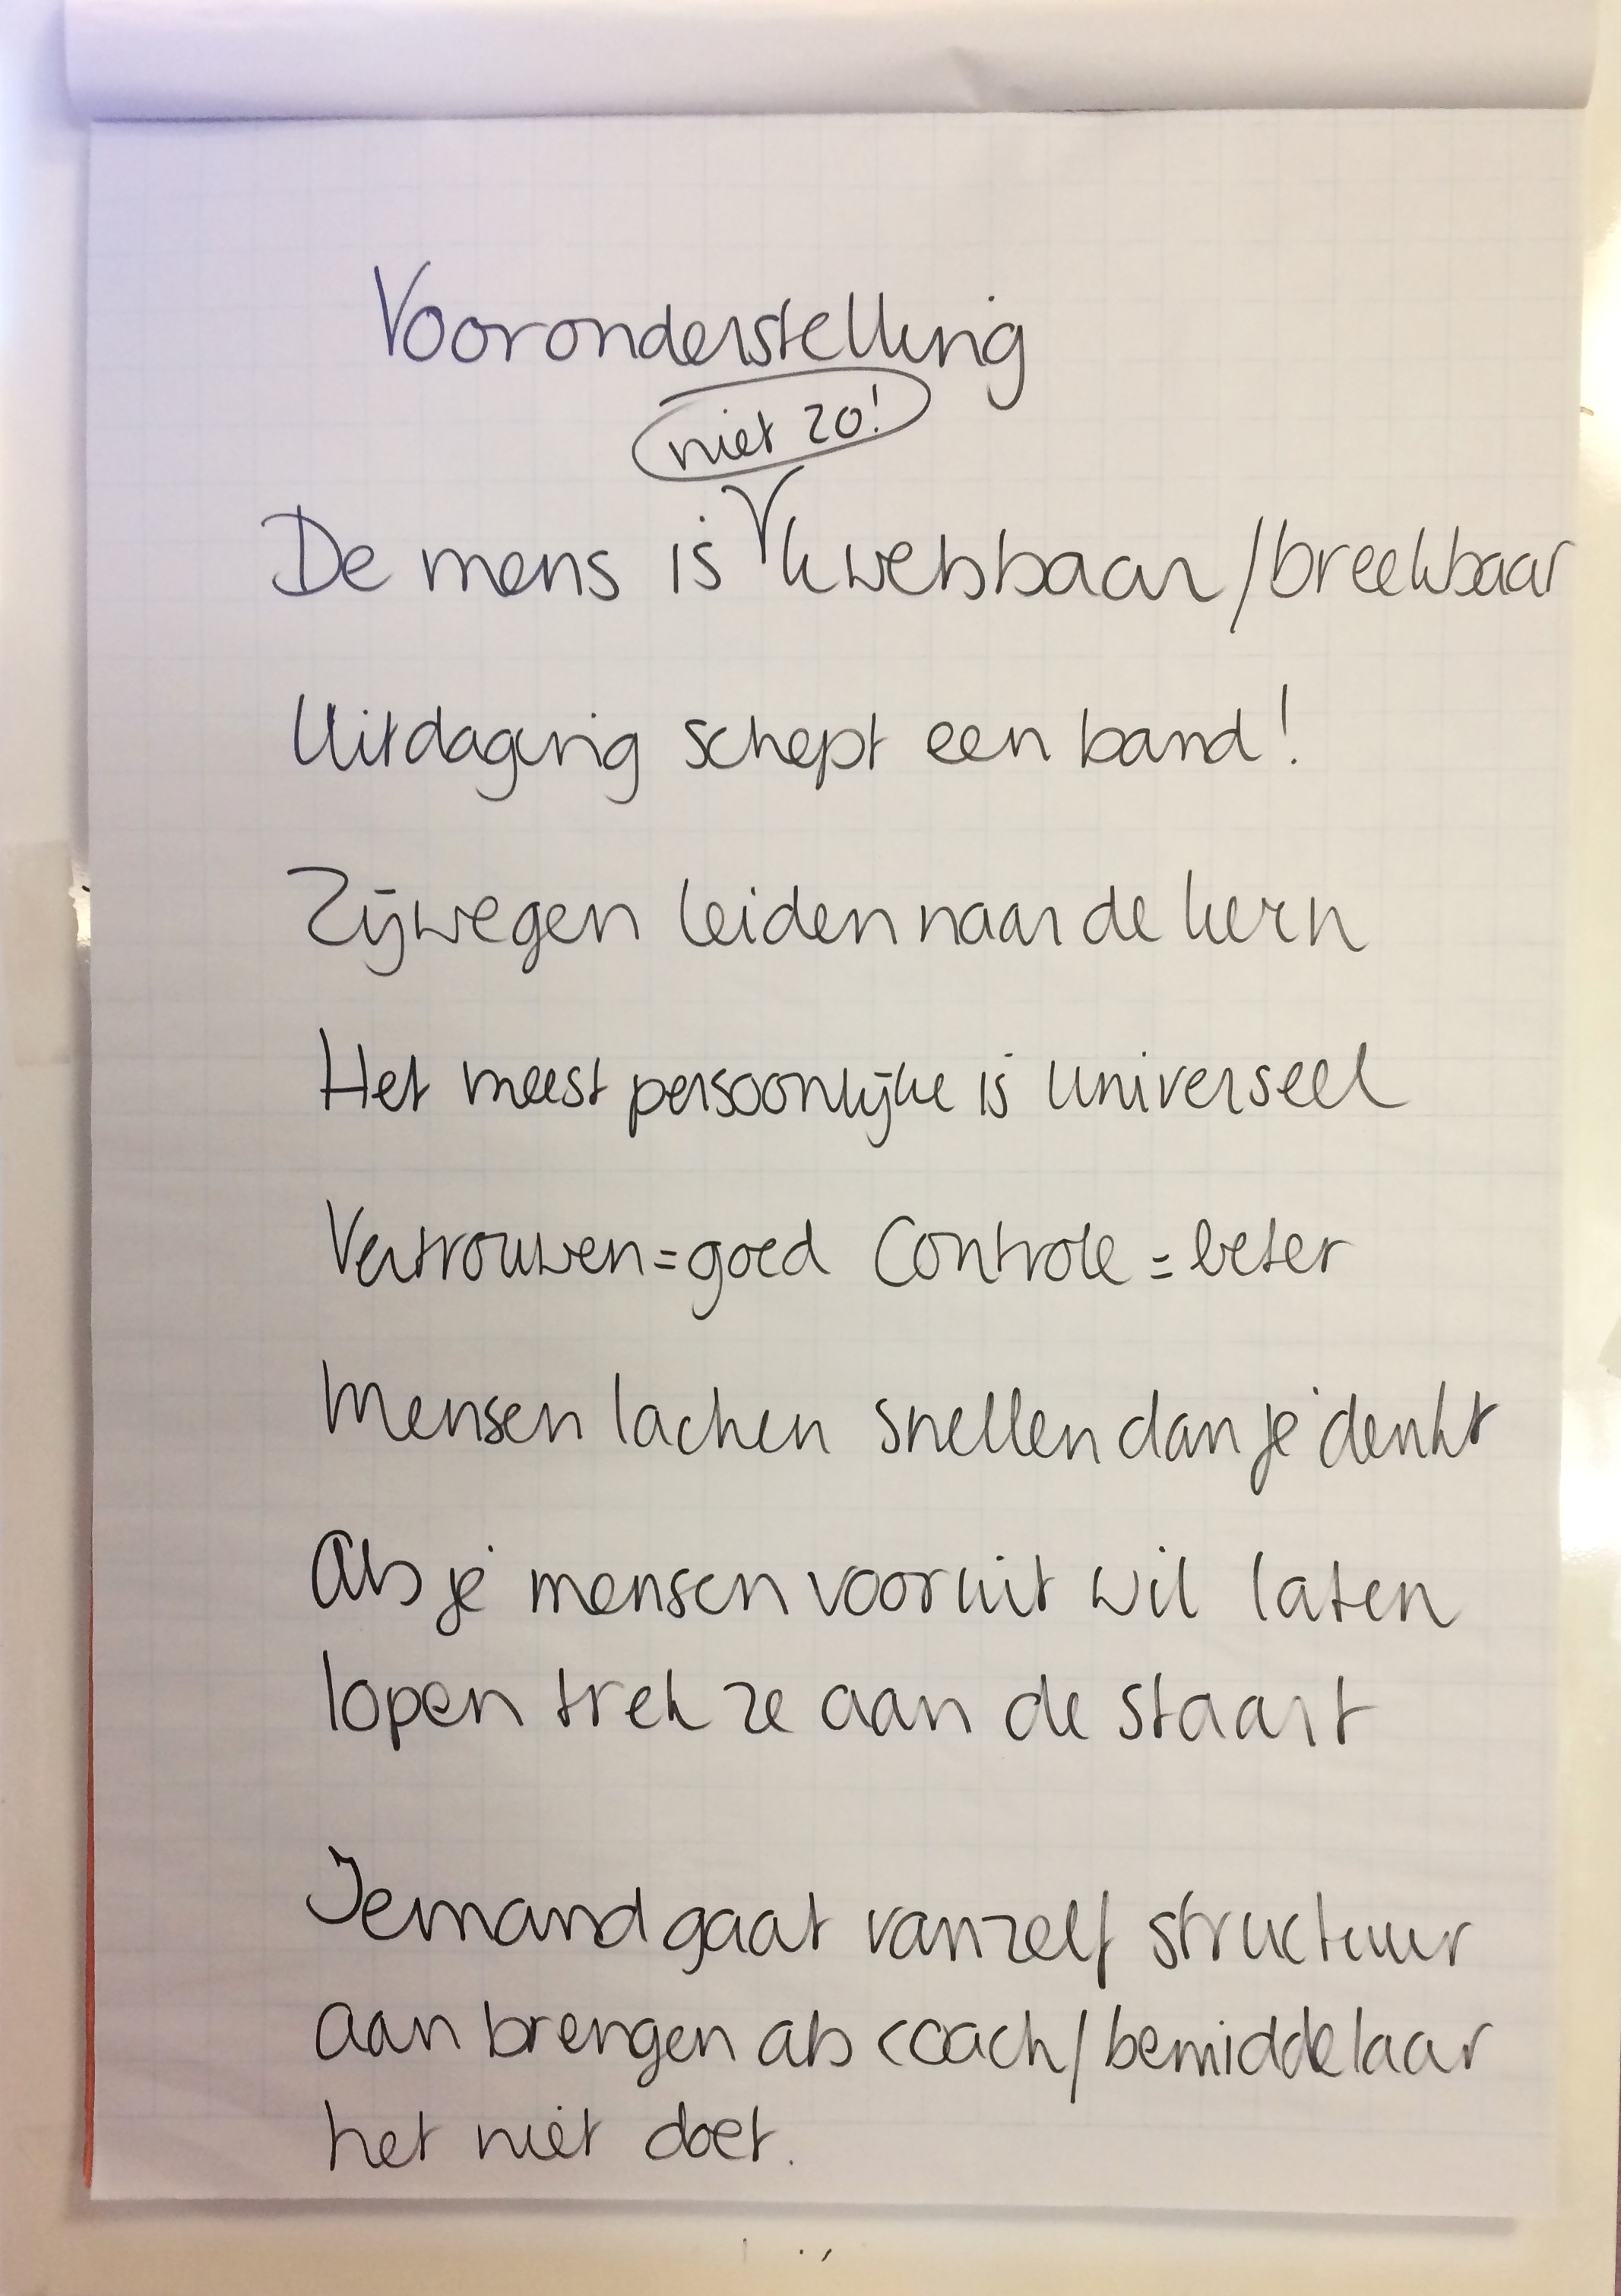 Vooronderstelling
niet zo!
De mens is kwetsbaar/breekbaar
Uitdaging schept een band!
Zijwegen leiden naar de kern
Het meest persoonlijke is universeel
Vertrouwen=goed Controle=beter
Mensen lachen sneller dan je denkt
Als je mensen vooruit wil laten
lopen trek ze aan de staart
Iemand gaat vanzelf structuur
aan brengen als coach/bemiddelaar
het niet doet.